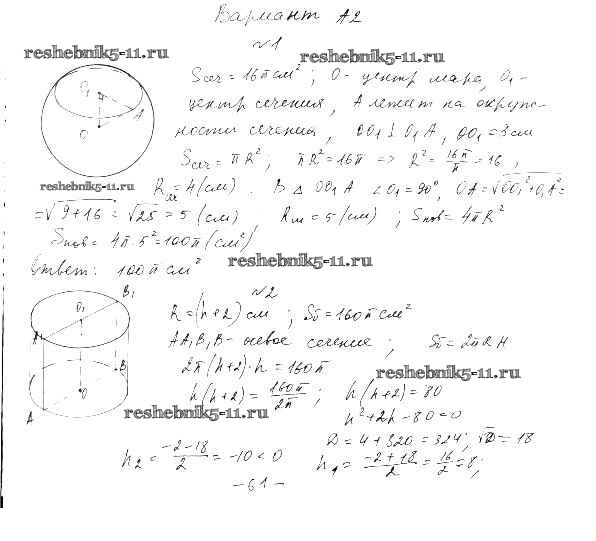 Вариант А2
№1
reshebnik5-11.ru
reshebnik5-11.ru
Sсеч = 16π см² ; O - центр шара, O₁ -
центр сечения, A лежит на окруж-
ности сечения, OO₁ ⊥ O₁A, OO₁ = 3 см
Sсеч = πR² ; πR² = 16π => R² = 16π/π = 16,
reshebnik5-11.ru
Rсеч = 4 (см). В △ OO₁A ∠O₁ = 90°, OA = √(OO₁² + O₁A²) =
= √(9+16) = √25 = 5 (см) Rш = 5 (см) ; Sпов = 4πR²
Sпов = 4π · 5² = 100π (см²)
Ответ: 100π см²
reshebnik5-11.ru
O₁
A
O
№2
B₁
R = (h+2) см ; Sб = 160π см²
O₁
A₁
AA₁B₁B - осевое сечение ; Sб = 2πRH
2π(h+2)·h = 160π
reshebnik5-11.ru
B
O
A
h(h+2) = 160π/2π ; h(h+2) = 80
reshebnik5-11.ru
h² + 2h - 80 = 0
D = 4 + 320 = 324 ; √D = 18
h₂ = (-2-18)/2 = -10 < 0 h₁ = (-2+18)/2 = 16/2 = 8 ;
- 61 -